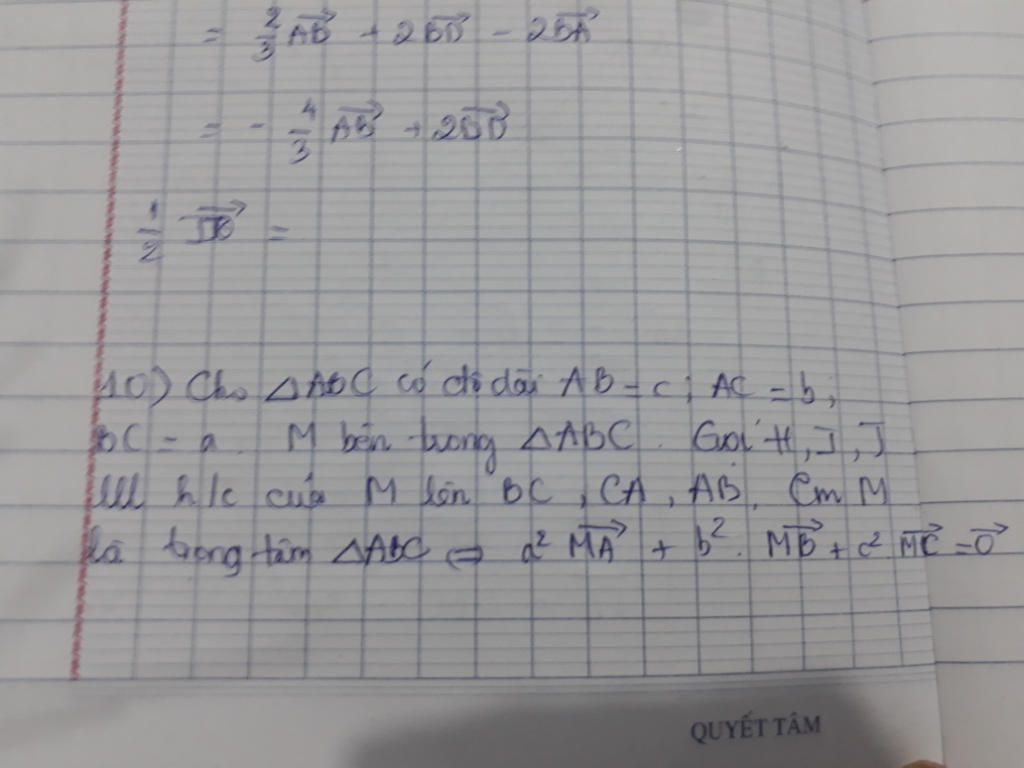 = 2/3 AB→ + 2BD→ - 2BA→
= - 4/3 AB→ + 2BD→
1/2 =
10) Cho △ABC có độ dài AB = c; AC = b;
BC = a. M bên trong △ABC. Gọi H, I, J
lll h/c của M lên BC, CA, AB. Cm M
là trọng tâm △ABC ⇔ a² MA→ + b². MB→ + c² MC→ = 0→
QUYẾT TÂM